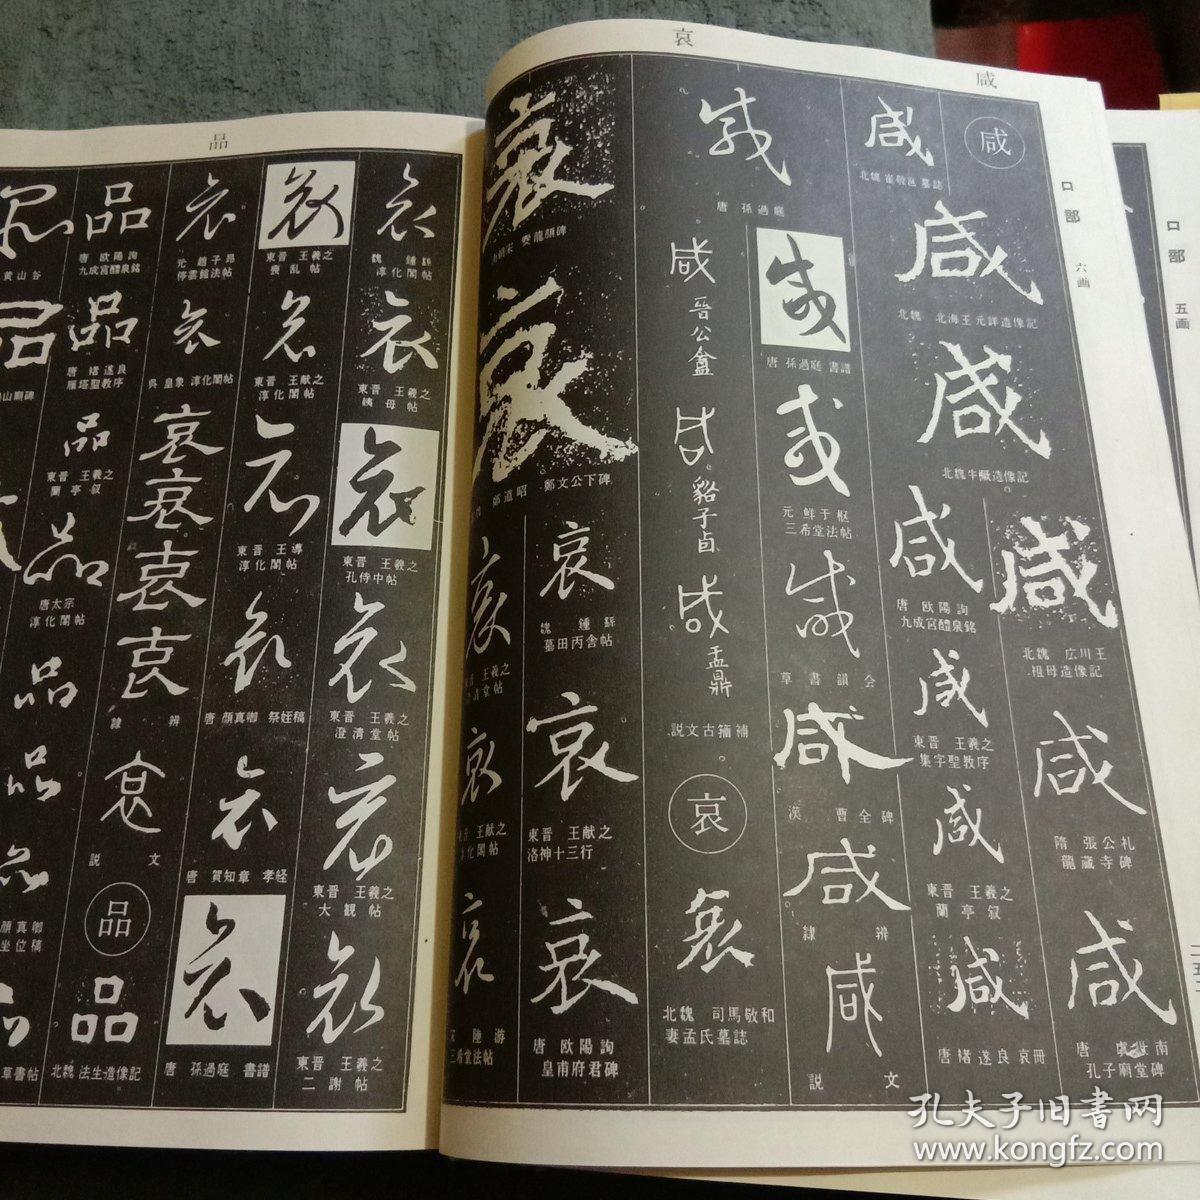 哀
咸
口部
六画
咸
咸
北魏 崔敬邕墓誌
咸
北魏 北海王元詳造像記
咸
北魏牛橛造像記
咸
北魏 広川王
祖母造像記
咸
隋 張公礼
龍蔵寺碑
咸
唐 虞世南
孔子廟堂碑
咸
唐 欧陽詢
九成宮醴泉銘
咸
東晋 王羲之
集字聖教序
咸
東晋 王羲之
蘭亭叙
咸
唐 褚遂良 哀冊
咸
唐 孫過庭
咸
唐 孫過庭 書譜
咸
元 鮮于枢
三希堂法帖
咸
草書韻会
咸
漢 曹全碑
咸
隷辨
咸
説文
咸
晉公盦
咸
貉子卣
咸
盂鼎
説文古籀補
哀
哀
北魏 司馬敬和
妻孟氏墓誌
哀
宋 爨龍顔碑
哀
鄭道昭 鄭文公下碑
哀
魏 鍾繇
墓田丙舎帖
哀
東晋 王献之
洛神十三行
哀
唐 欧陽詢
皇甫府君碑
哀
王羲之
清堂帖
哀
東晋 王献之
淳化閣帖
哀
宋 陸游
三希堂法帖
品
哀
魏 鍾繇
淳化閣帖
哀
東晋 王羲之
姨母帖
哀
東晋 王羲之
孔侍中帖
哀
東晋 王羲之
澄清堂帖
哀
東晋 王羲之
大観帖
哀
東晋 王羲之
二謝帖
哀
東晋 王羲之
喪乱帖
哀
東晋 王献之
淳化閣帖
哀
東晋 王導
淳化閣帖
哀
唐 顔真卿 祭姪稿
哀
唐 賀知章 孝経
哀
唐 孫過庭 書譜
哀
元 趙子昂
停雲館法帖
哀
呉 皇象 淳化閣帖
哀
哀
哀
哀
隷辨
哀
説文
品
品
北魏 法生造像記
品
唐 欧陽詢
九成宮醴泉銘
品
唐 褚遂良
雁塔聖教序
品
東晋 王羲之
蘭亭叙
品
唐太宗
淳化閣帖
品
品
品
黄山谷
品
山廟碑
品
顔真卿
坐位稿
草書帖
口部
五画
孔夫子旧书网
www.kongfz.com